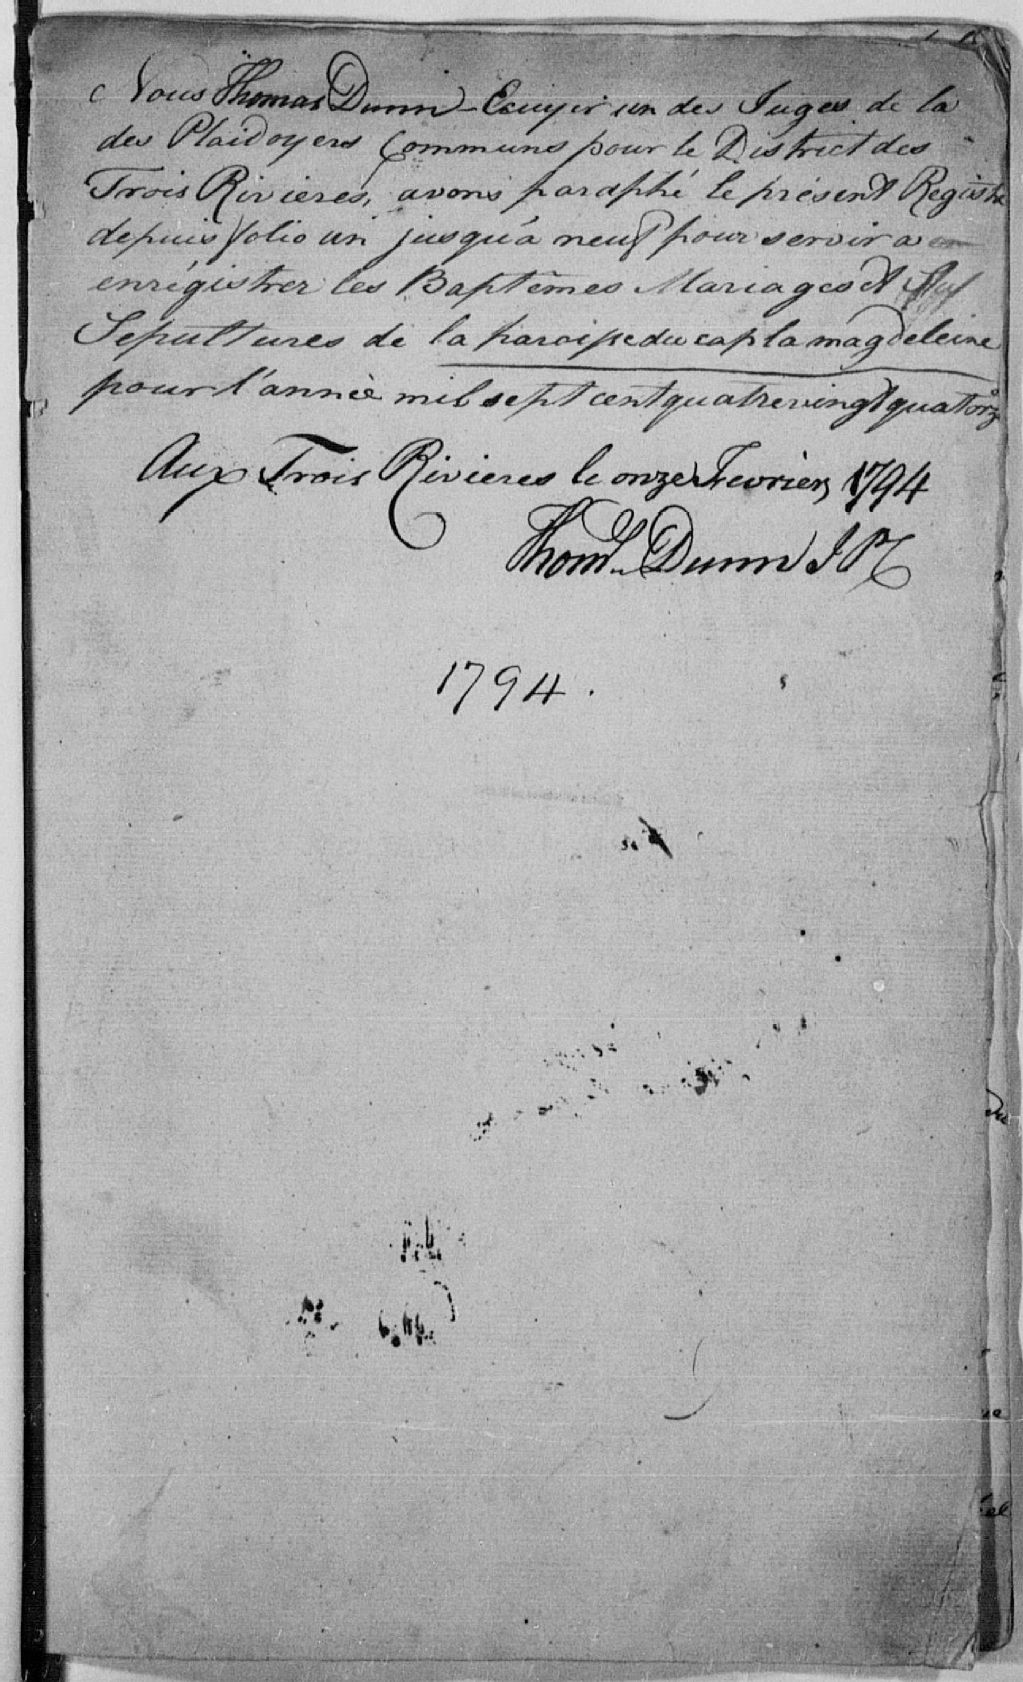 Nous Thomas Dunn Ecuyer un des Juges de la
des Plaidoyers Communs pour le District des
Trois Rivieres, avons paraphé le présent Registre
depuis folio un jusqu'a neuf pour servir a
enrégistrer les Baptêmes Mariages et
Sepultures de la paroisse du cap la magdeleine
pour l'année mil sept cent quatre vingt quatorze
Aux Trois Rivieres le onze Fevrier, 1794
Thos. Dunn J P C
1794.